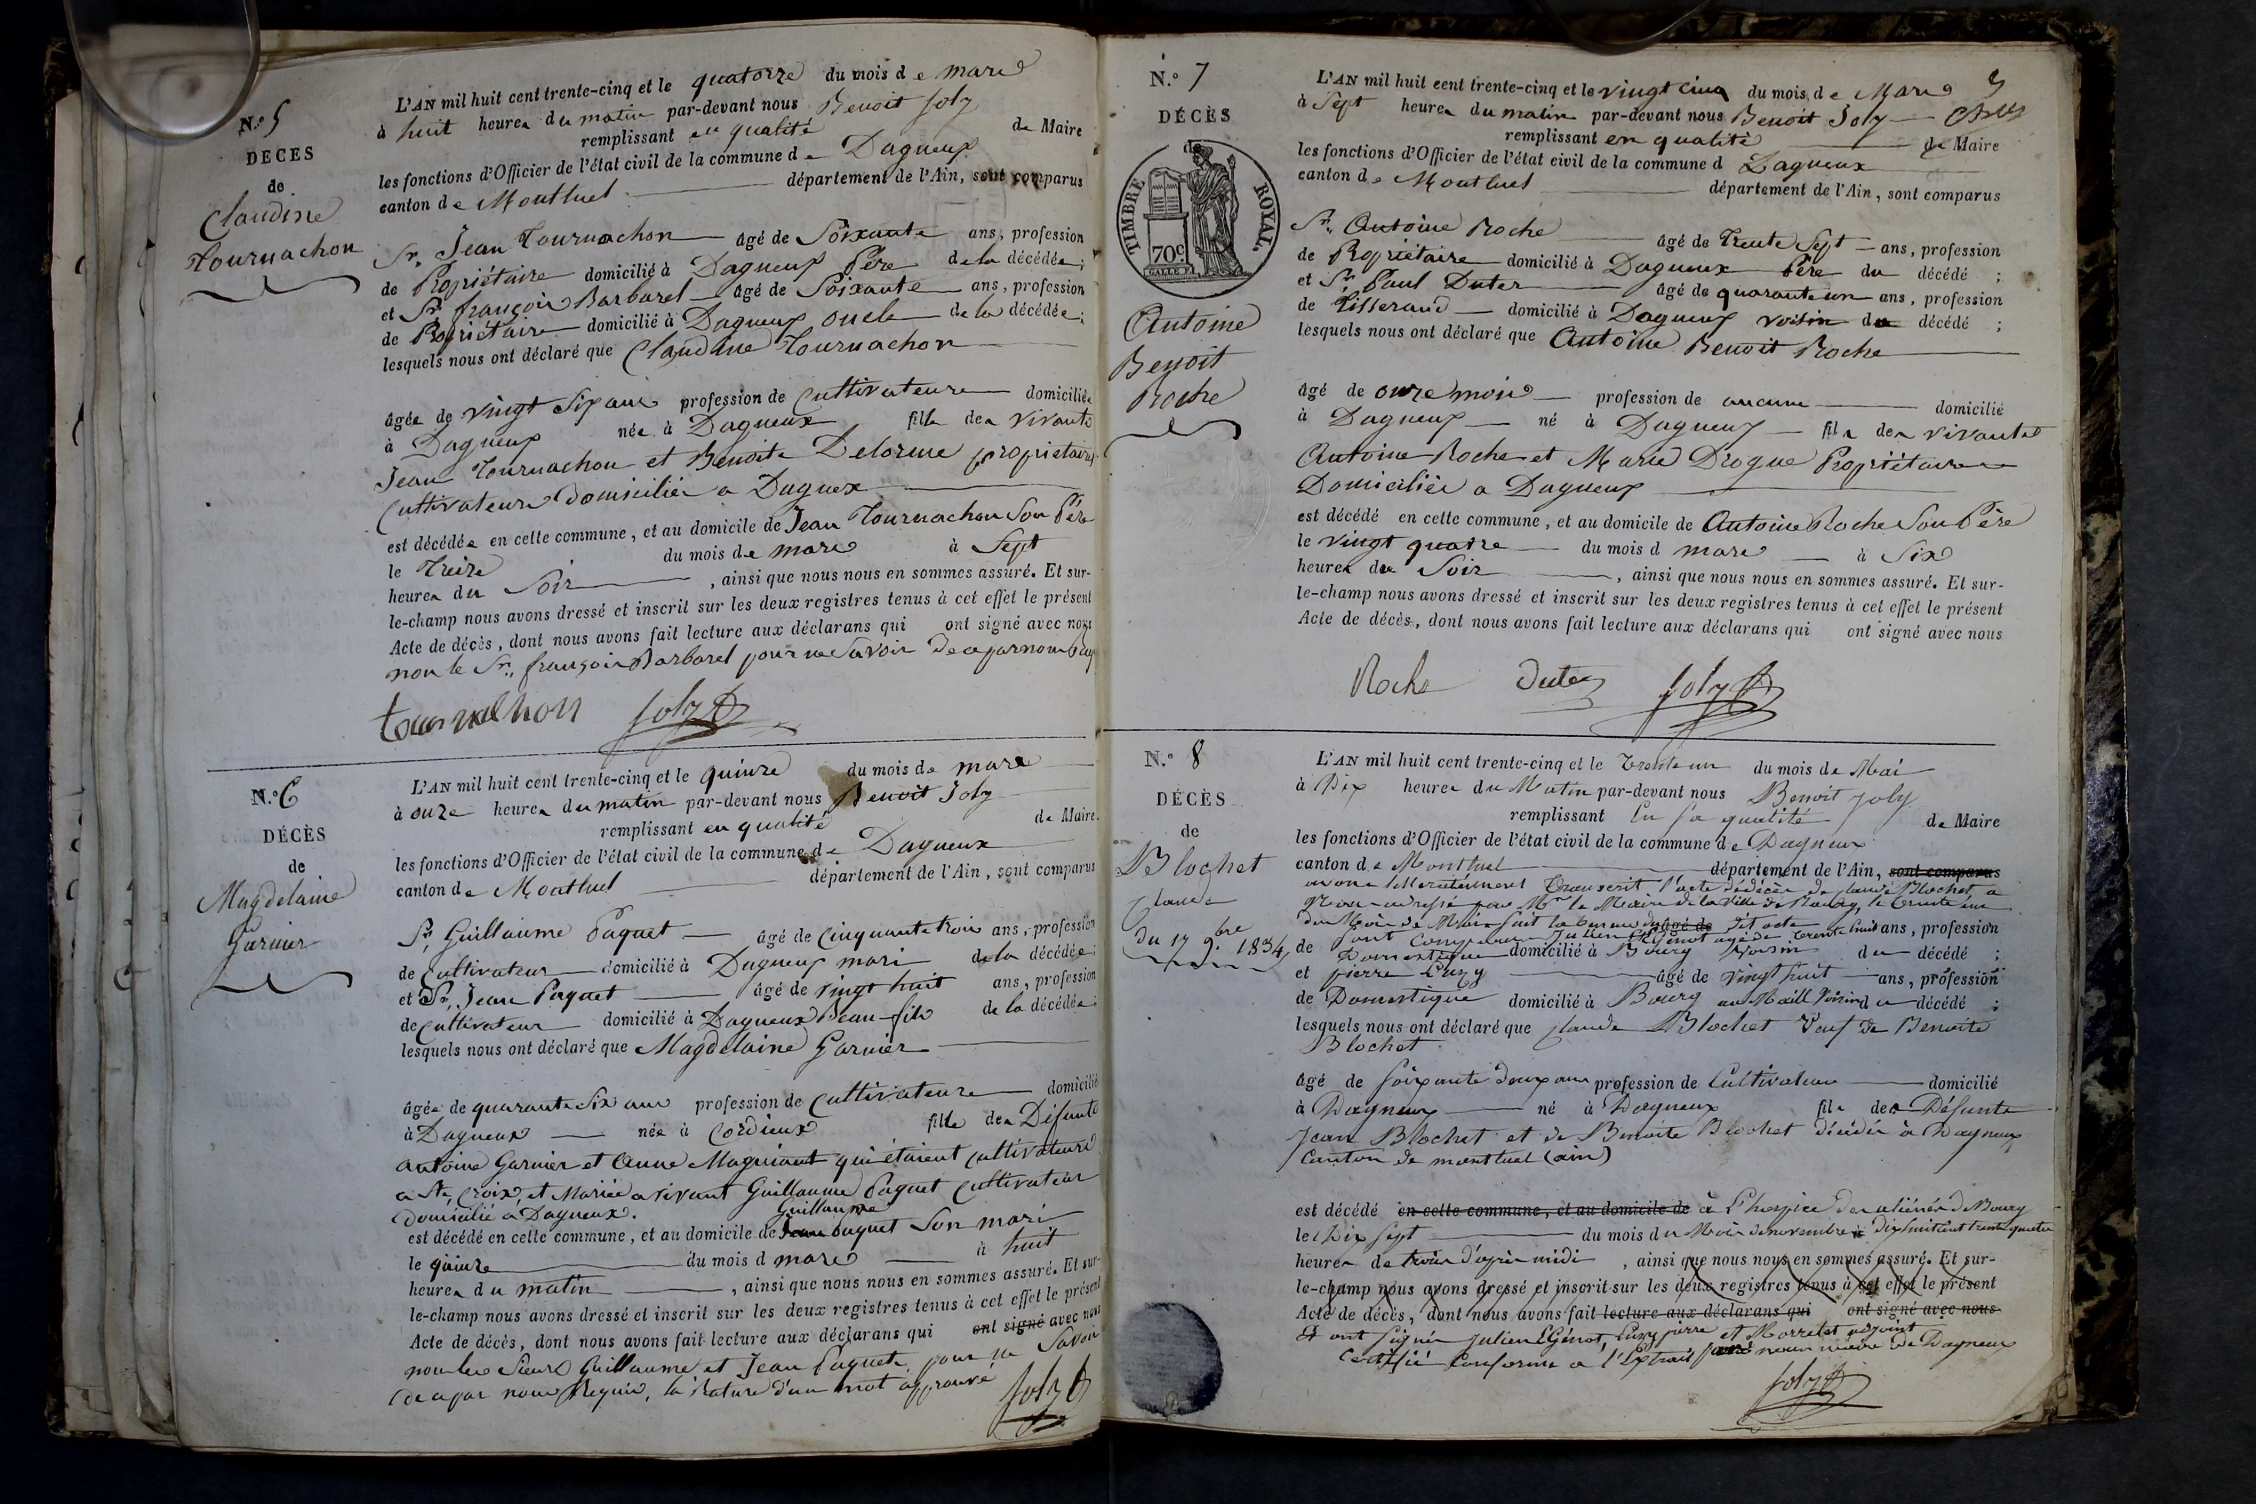 N.º 5
DÉCÈS
de
Claudine
Tournachon
L'AN mil huit cent trente-cinq et le quatorze du mois de mars
à huit heures du matin par-devant nous Benoit Joly
remplissant en qualité de Maire
les fonctions d'Officier de l'état civil de la commune de Dagneux
canton de Montluel département de l'Ain, sont comparus
Sr. Jean Tournachon âgé de Soixante ans, profession
de Propriétaire domicilié à Dagneux Père de la décédée;
et Sr. françois Barbarel âgé de Soixante ans, profession
de Propriétaire domicilié à Dagneux oncle de la décédée;
lesquels nous ont déclaré que Claudine Tournachon
âgée de vingt Six ans profession de Cultivateure domiciliée
à Dagneux née à Dagneux fille des vivants
Jean Tournachon et Benoite Delorme propriétaires
Cultivateurs domiciliés a Dagneux
est décédée en cette commune, et au domicile de Jean Tournachon Son Père
le Treize du mois de mars à Sept
heures du Soir, ainsi que nous nous en sommes assuré. Et sur-
le-champ nous avons dressé et inscrit sur les deux registres tenus à cet effet le présent
Acte de décès, dont nous avons fait lecture aux déclarans qui ont signé avec nous
non le Sr. françois Barbarel pour ne Savoir de ce par nous Req
tournachon Joly
N.º 6
DÉCÈS
de
Magdelaine
Garnier
L'AN mil huit cent trente-cinq et le quinze du mois de mars
à onze heures du matin par-devant nous Benoit Joly
remplissant en qualité de Maire
les fonctions d'Officier de l'état civil de la commune de Dagneux
canton de Montluel département de l'Ain, sont comparus
Sr. Guillaume Paquet âgé de Cinquante trois ans, profession
de Cultivateur domicilié à Dagneux mari de la décédée;
et Sr. Jean Paquet âgé de vingt huit ans, profession
de Cultivateur domicilié à Dagneux Beau-fils de la décédée;
lesquels nous ont déclaré que Magdelaine Garnier
âgée de quarante Six ans profession de Cultivateure domicilié
à Dagneux née à Cordieux fille des Défunts
Antoine Garnier et Anne Magniant qui étaient Cultivateurs
a Ste. Croix, et Mariée a vivant Guillaume Paquet Cultivateur
domicilié a Dagneux.
Guillaume
est décédée en cette commune, et au domicile de Jean Paquet Son mari
le quinze du mois d mars à huit
heures du matin, ainsi que nous nous en sommes assuré. Et sur-
le-champ nous avons dressé et inscrit sur les deux registres tenus à cet effet le présent
Acte de décès, dont nous avons fait lecture aux déclarans qui ont signé avec nous
non les Sieurs Guillaume et Jean Paquet, pour ne Savoir
de ce par nous Requis, la Rature d'un mot approuvé
Joly
N.º 7
DÉCÈS
de
TIMBRE ROYAL.
70c
Antoine
Benoit
Roche
L'AN mil huit cent trente-cinq et le vingt cinq du mois de Mars
à Sept heures du matin par-devant nous Benoit Joly
remplissant en qualité de Maire
les fonctions d'Officier de l'état civil de la commune d Dagneux
canton de Montluel département de l'Ain, sont comparus
Sr. Antoine Roche âgé de Trente Sept ans, profession
de Propriétaire domicilié à Dagneux Père du décédé;
et Sr. Paul Duter âgé de quarante un ans, profession
de Tisserand domicilié à Dagneux voisin du décédé;
lesquels nous ont déclaré que Antoine Benoit Roche
âgé de onze mois profession de aucune domicilié
à Dagneux né à Dagneux fils des vivants
Antoine Roche et Marie Drogue Propriétaires
Domiciliés a Dagneux
est décédé en cette commune, et au domicile de Antoine Roche Son Père
le vingt quatre du mois d mars à Six
heures du Soir, ainsi que nous nous en sommes assuré. Et sur-
le-champ nous avons dressé et inscrit sur les deux registres tenus à cet effet le présent
Acte de décès, dont nous avons fait lecture aux déclarans qui ont signé avec nous
Roche Duter Joly
N.º 8
DÉCÈS
de
Blochet
Claude
du 17 9.bre 1834
L'AN mil huit cent trente-cinq et le Trente un du mois de Mai
à Dix heures du Matin par-devant nous Benoit Joly
remplissant En Sa qualité de Maire
les fonctions d'Officier de l'état civil de la commune de Dagneux
canton de Montluel département de l'Ain, sont comparus
avons littéralement Transcrit l'acte de décès de Claude Blochet, a
Nous adressé par Mr le Maire de la Ville de Bourg, le Trente un
du Mois de Mai Suit la teneur du dit acte
sont Comparus Julien Génot agé de trente huit ans, profession
de Domestique domicilié à Bourg Voisin du décédé;
et pierre Cuzy âgé de vingt huit ans, profession
de Domestique domicilié à Bourg Voisin du décédé;
lesquels nous ont déclaré que Claude Blochet Veuf de Benoite
Blochet
âgé de Soixante deux ans profession de Cultivateur domicilié
à Dagneux né à Dagneux fils des Défunts
Jean Blochet et de Benoite Blochet décédés à Dagneux
Canton de montluel (ain)
est décédé en cette commune, et au domicile de à L'hospice des aliénés de Bourg
le Dix Sept du mois du Mois de novembre Dix huit cent trente quatre
heures de trois d'après midi, ainsi que nous nous en sommes assuré. Et sur-
le-champ nous avons dressé et inscrit sur les deux registres tenus à cet effet le présent
Acte de décès, dont nous avons fait lecture aux déclarans qui ont signé avec nous
Et ont Signés Julien Génot, Cuzy pierre et Morrelet adjoint
Certifié Conforme a l'Extrait par nous maire de Dagneux
Joly